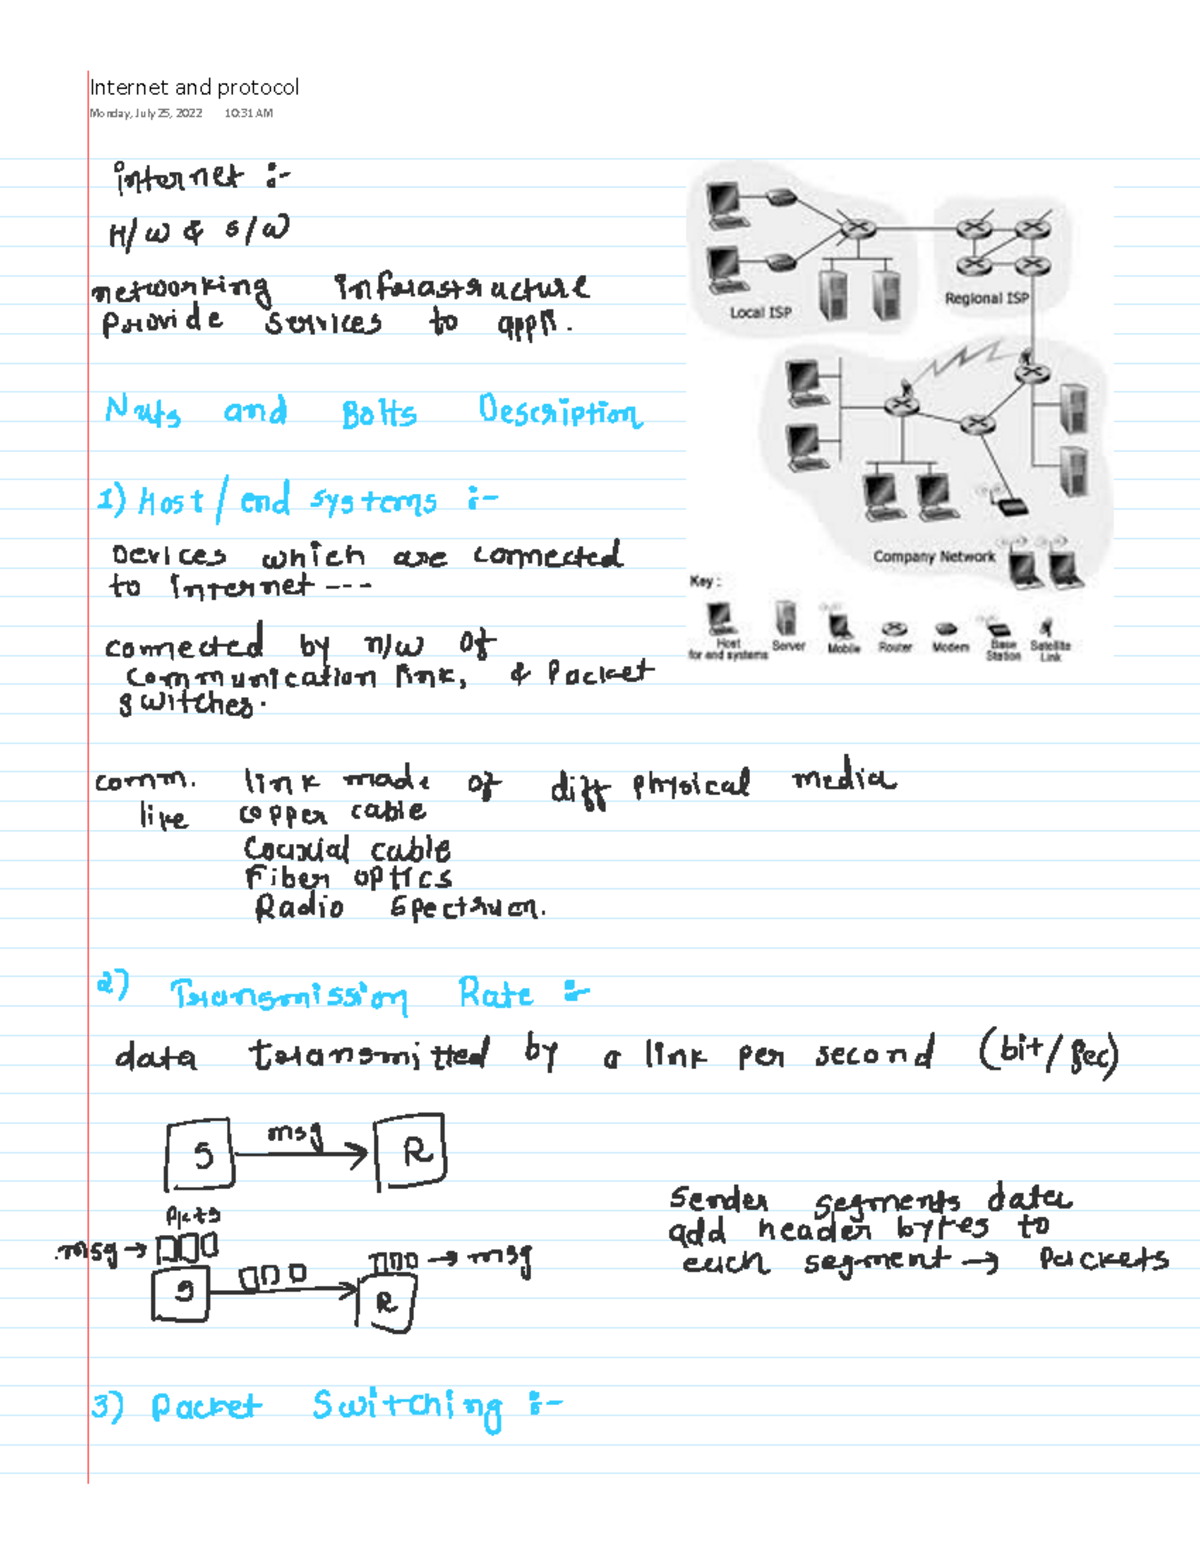 Internet and protocol
Monday, July 25, 2022 10:31 AM
internet :-
H/W & S/W
networking infrastructure
Provide services to appli.
Nuts and Bolts Description
1) Host / end systems :-
Devices which are connected
to internet ---
connected by n/w of
communication link, & Packet
switches.
comm. link made of diff physical media
like copper cable
Coaxial cable
Fiber optics
Radio Spectrum.
2) Transmission Rate :-
data transmitted by a link per second (bit/sec)
S msg R
Pkts
msg → 
S R → msg
Sender segments data
add header bytes to
each segment → Packets
3) Packet Switching :-
Local ISP
Regional ISP
Company Network
Key :
Host
for end systems
Server
Mobile
Router
Modem
Base
Station
Satellite
Link